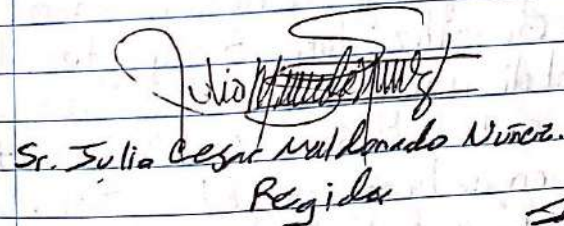 Julio
Sr. Julio Cesar Maldonado Núñez.
Regidor